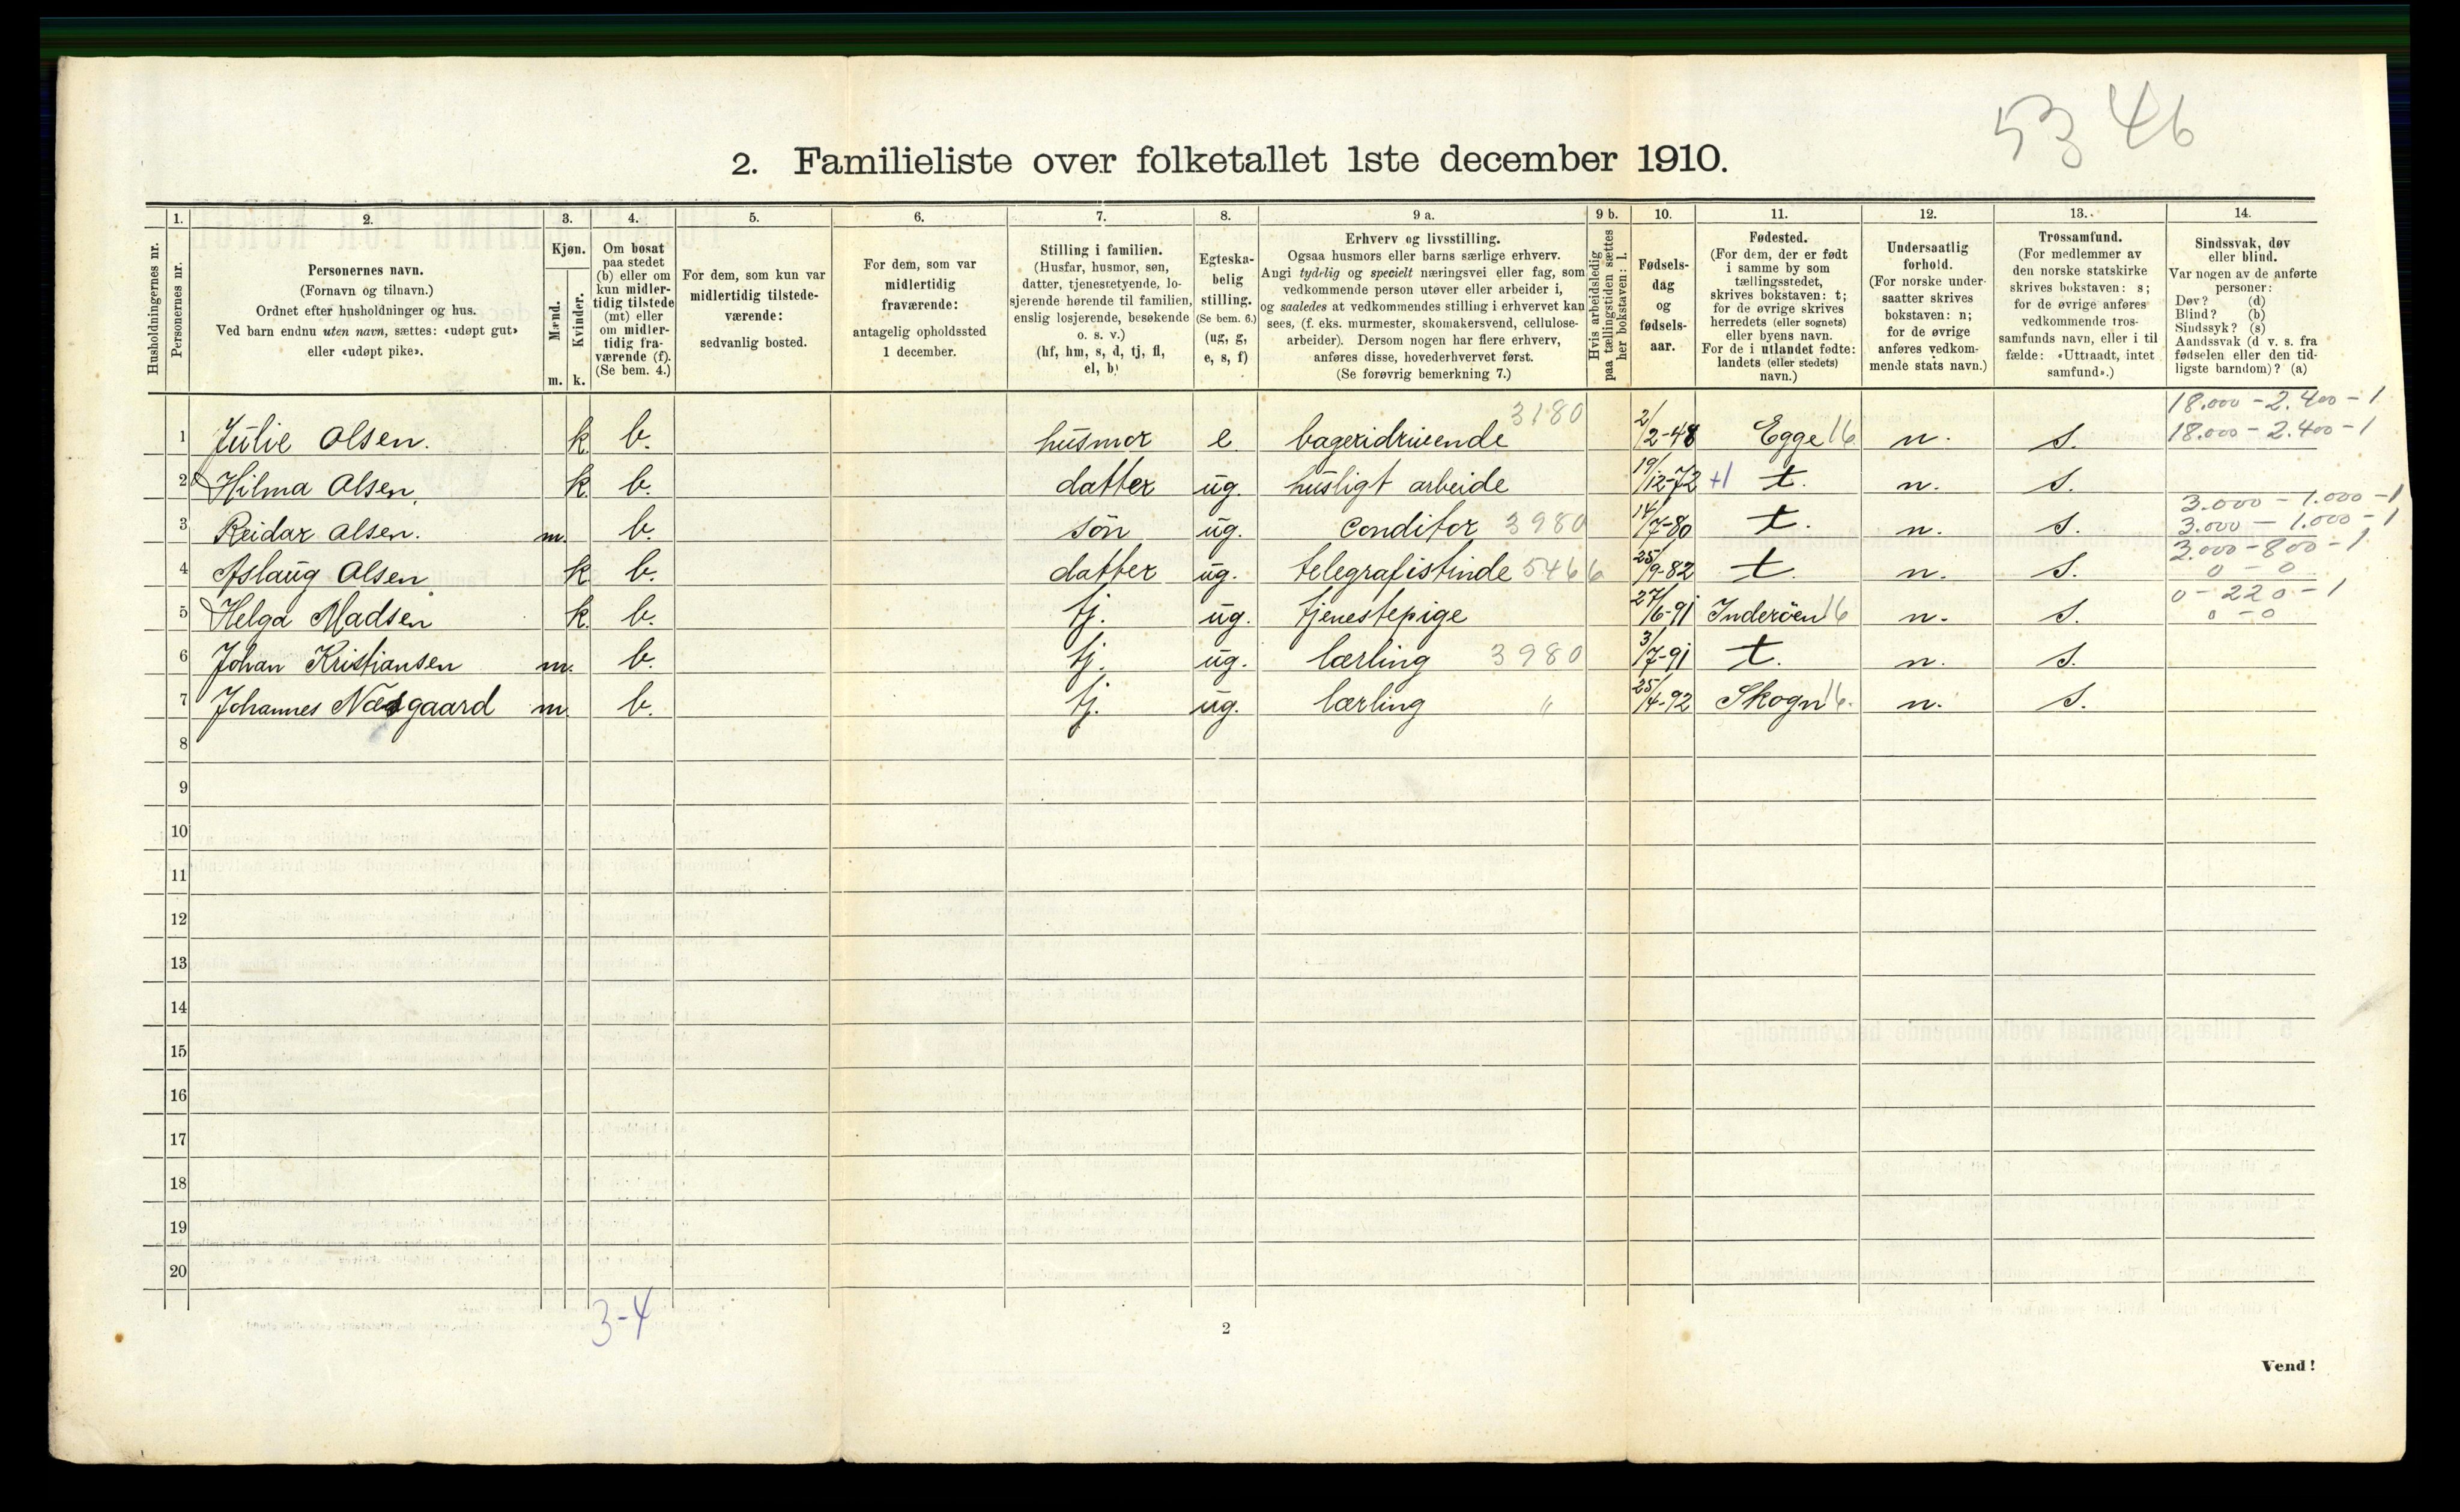 53 46
2. Familieliste over folketallet 1ste december 1910.
1. 2. 3. 4. 5. 6. 7. 8. 9 a. 9 b. 10. 11. 12. 13. 14.
Husholdningernes nr.
Personernes nr.
Personernes navn.
(Fornavn og tilnavn.)
Ordnet efter husholdninger og hus.
Ved barn endnu uten navn, sættes: «udøpt gut»
eller «udøpt pike».
Kjøn.
Mænd.
Kvinder.
m. k.
Om bosat
paa stedet
(b) eller om
kun midler-
tidig tilstede
(mt) eller
om midler-
tidig fra-
værende (f).
(Se bem. 4.)
For dem, som kun var
midlertidig tilstede-
værende:
sedvanlig bosted.
For dem, som var
midlertidig
fraværende:
antagelig opholdssted
1 december.
Stilling i familien.
(Husfar, husmor, søn,
datter, tjenestetyende, lo-
sjerende hørende til familien,
enslig losjerende, besøkende
o. s. v.)
(hf, hm, s, d, tj, fl,
el, b)
Egteska-
belig
stilling.
(Se bem. 6.)
(ug, g,
e, s, f)
Erhverv og livsstilling.
Ogsaa husmors eller barns særlige erhverv.
Angi tydelig og specielt næringsvei eller fag, som
vedkommende person utøver eller arbeider i,
og saaledes at vedkommendes stilling i erhvervet kan
sees, (f. eks. murmester, skomakersvend, cellulose-
arbeider). Dersom nogen har flere erhverv,
anføres disse, hovederhvervet først.
(Se forøvrig bemerkning 7.)
Hvis arbeidsledig
paa tællingstiden sættes
her bokstaven: l.
Fødsels-
dag
og
fødsels-
aar.
Fødested.
(For dem, der er født
i samme by som
tællingsstedet,
skrives bokstaven: t;
for de øvrige skrives
herredets (eller sognets)
eller byens navn.
For de i utlandet fødte:
landets (eller stedets)
navn.)
Undersaatlig
forhold.
(For norske under-
saatter skrives
bokstaven: n;
for de øvrige
anføres vedkom-
mende stats navn.)
Trossamfund.
(For medlemmer av
den norske statskirke
skrives bokstaven: s;
for de øvrige anføres
vedkommende tros-
samfunds navn, eller i til
fælde: «Uttraadt, intet
samfund».)
Sindssvak, døv
eller blind.
Var nogen av de anførte
personer:
Døv? (d)
Blind? (b)
Sindssyk? (s)
Aandssvak (d v. s. fra
fødselen eller den tid-
ligste barndom)? (a)
18.000 - 2.400 - 1
1 Julie Olsen. k. b. husmor e bageridrivende 3180 2/2-48 Egge 16 n. s. 18.000 - 2.400 - 1
2 Hilma Olsen. k. b. datter ug. husligt arbeide 19/12-72 +1 t. n. s.
3.000 - 1.000 - 1
3 Reidar Olsen. m. b. søn ug. conditor 3980 14/7-80 t. n. s. 3.000 - 1.000 - 1
3.000 - 800 - 1
4 Aslaug Olsen k. b. datter ug. telegrafistinde 5466 25/9-82 t. n. s. 0 - 0
0 - 220 - 1
5 Helga Madsen k. b. tj. ug. tjenestepige 27/6-91 Inderøen 16 n. s. 0 - 0
6 Johan Kristiansen m. b. tj. ug. lærling 3980 3/7-91 t. n. s.
7 Johannes Næsgaard m. b. tj. ug. lærling " 25/4-92 Skogn 16. n. s.
8
9
10
11
12
13
14
15
16
17
18
19
20
3-4
2
Vend!